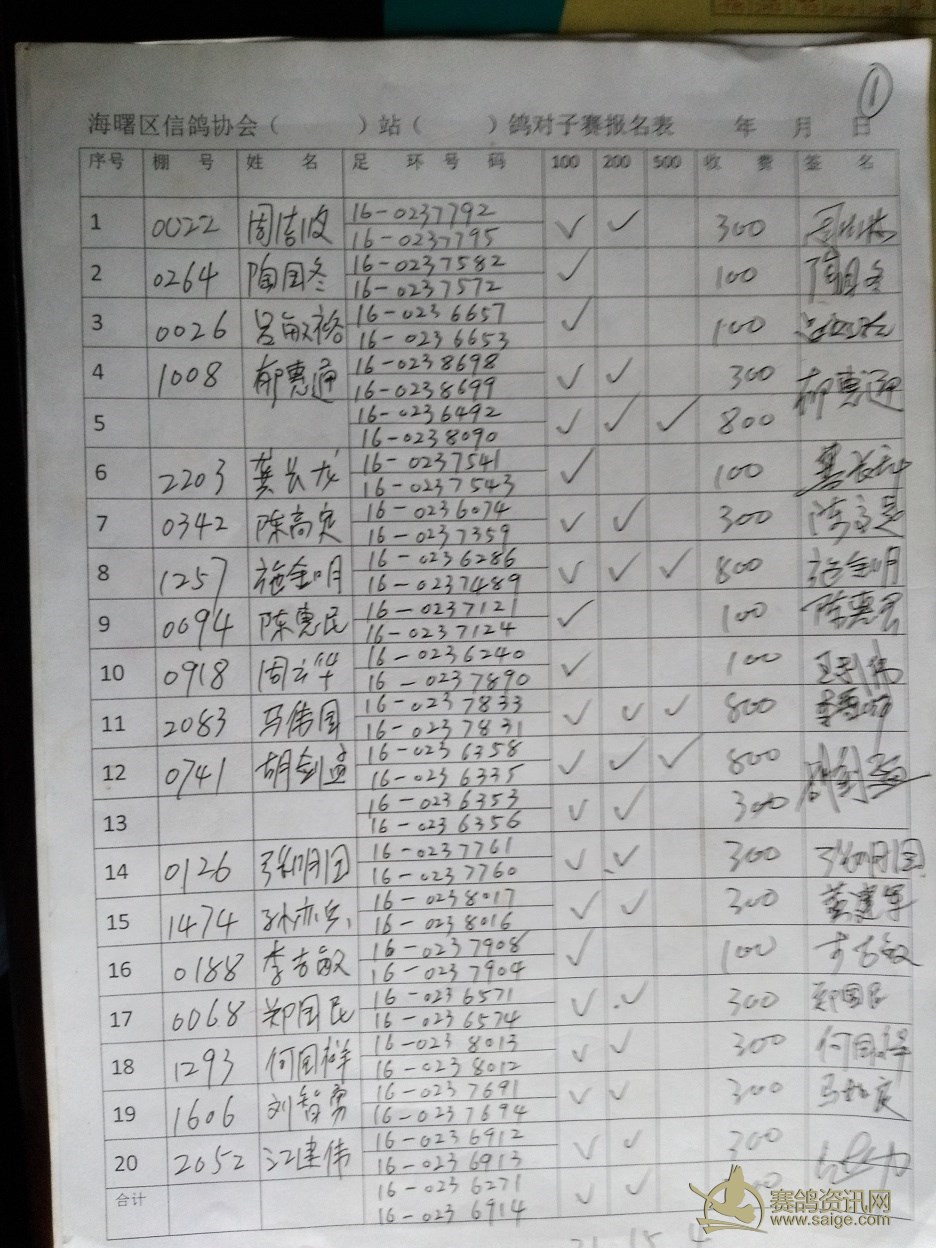 ①
海曙区信鸽协会（ ）站（ ）鸽对子赛报名表 年 月 日
序号 棚 号 姓 名 足 环 号 码 100 200 500 收 费 签 名
1 0022 16-0237792 ✓ ✓ 300
16-0237795
2 0264 陶国冬 16-0237582 ✓ 100 陶国冬
16-0237572
3 0026 吕敏裕 16-0236657 ✓ 100
16-0236653
4 1008 郁惠通 16-0238698 ✓ ✓ 300 郁惠通
16-0238699
5 16-0236492 ✓ ✓ ✓ 800
16-0238090
6 2203 龚长龙 16-0237541 ✓ 100
16-0237543
7 0342 陈高定 16-0236074 ✓ ✓ 300 陈高定
16-0237359
8 1257 施金明 16-0236286 ✓ ✓ ✓ 800 施金明
16-0237489
9 0094 陈惠民 16-0237121 ✓ 100 陈惠民
16-0237124
10 0918 周云华 16-0236240 ✓ 100
16-0237890
11 2083 马伟国 16-0237833 ✓ ✓ ✓ 800
16-0237831
12 0741 胡剑孟 16-0236358 ✓ ✓ ✓ 800
16-0236335
13 16-0236353 ✓ ✓ 300
16-0236356
14 0126 张明国 16-0237761 ✓ ✓ 300 张明国
16-0237760
15 1474 孙亦兵 16-0238017 ✓ ✓ 300
16-0238016
16 0188 李方敏 16-0237908 ✓ 100 李方敏
16-0237904
17 0068 郑国民 16-0236571 ✓ ✓ 300 郑国民
16-0236574
18 1293 何国祥 16-0238013 ✓ ✓ 300 何国祥
16-0238012
19 1606 刘智勇 16-0237691 ✓ ✓ 300
16-0237694
20 2052 江建伟 16-0236912 ✓ ✓ 300
16-0236913
合计 16-0236271 ✓ ✓
16-0236914
21 15 4
赛鸽资讯网
www.saige.com